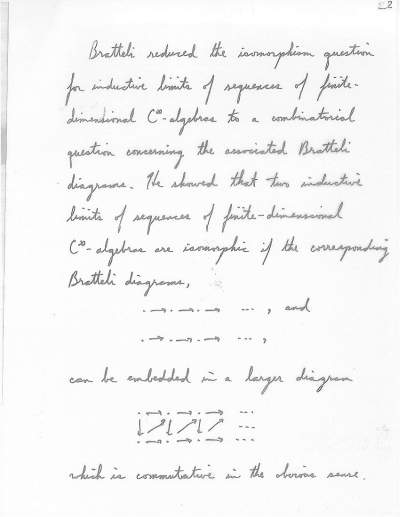 2
Bratteli reduced the isomorphism question
for inductive limits of sequences of finite-
dimensional C*-algebras to a combinatorial
question concerning the associated Bratteli
diagrams. He showed that two inductive
limits of sequences of finite-dimensional
C*-algebras are isomorphic if the corresponding
Bratteli diagrams,
. → . → . → ... , and
. → . → . → ... ,
can be embedded in a larger diagram
. → . → . → ...
↓ ↗ ↓ ↗ ↓ ↗ ...
. → . → . → ...
which is commutative in the obvious sense.